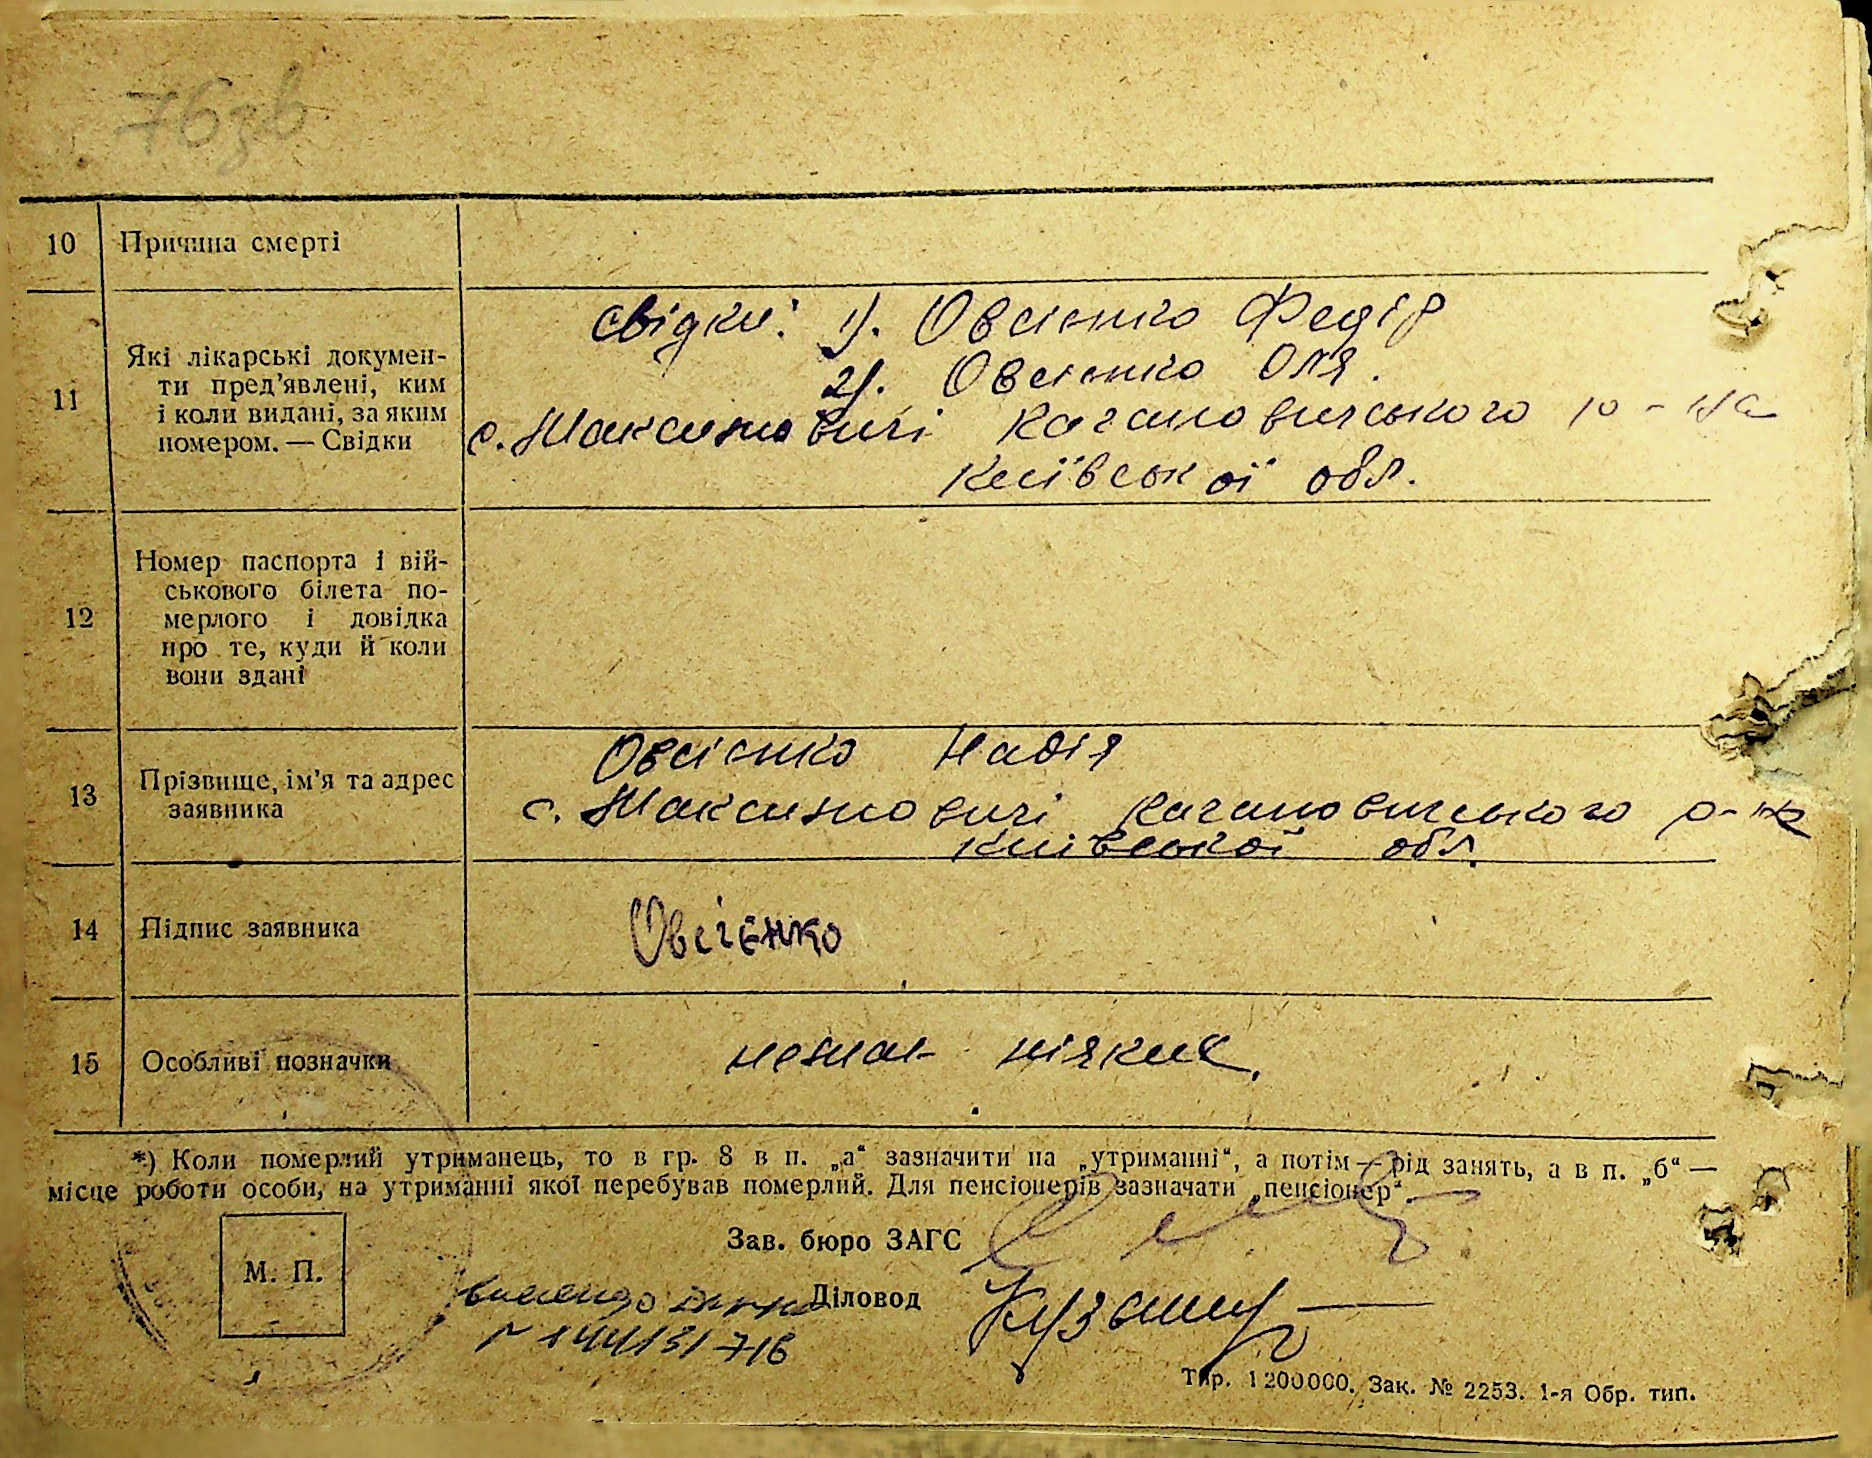 76зв
10 Причина смерті
11 Які лікарські докумен-
ти пред'явлені, ким
і коли видані, за яким
номером. — Свідки
свідки: 1). Овсієнко Федір
2). Овсієнко Оля.
с. Максимовичі Кагановичського р-на
Київської обл.
12 Номер паспорта і вій-
ськового білета по-
мерлого і довідка
про те, куди й коли
вони здані
13 Прізвище, ім'я та адрес
заявника
Овсієнко Надія
с. Максимовичі Кагановичського р-на
Київської обл.
14 Підпис заявника
Овсієнко
15 Особливі позначки
немає ніяких.
*) Коли померлий утриманець, то в гр. 8 в п. „а“ зазначити на „утриманні“, а потім — рід занять, а в п. „б“ —
місце роботи особи, на утриманні якої перебував померлий. Для пенсіонерів зазначати „пенсіонер“.
Зав. бюро ЗАГС
М. П.
Діловод
Тир. 1200000. Зак. № 2253. 1-я Обр. тип.